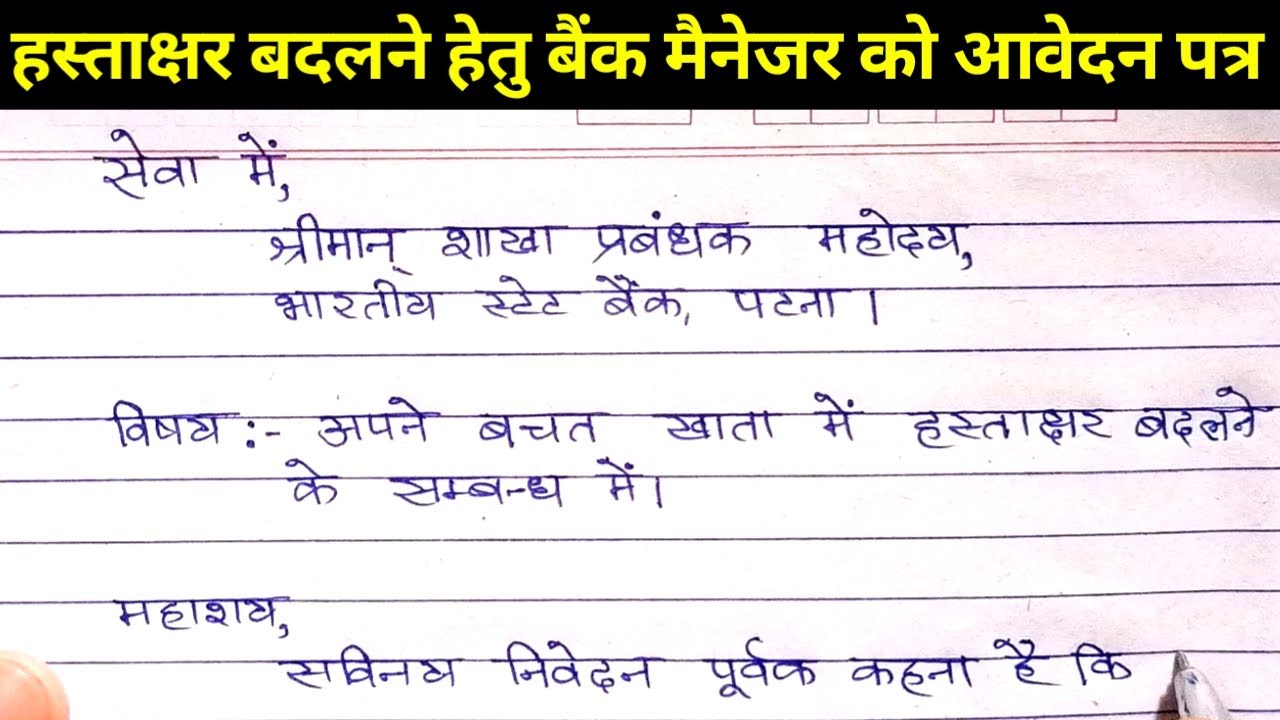 हस्ताक्षर बदलने हेतु बैंक मैनेजर को आवेदन पत्र
सेवा में,
श्रीमान् शाखा प्रबंधक महोदय,
भारतीय स्टेट बैंक, पटना।
विषय :- अपने बचत खाता में हस्ताक्षर बदलने
के सम्बन्ध में।
महाशय,
सविनय निवेदन पूर्वक कहना है कि